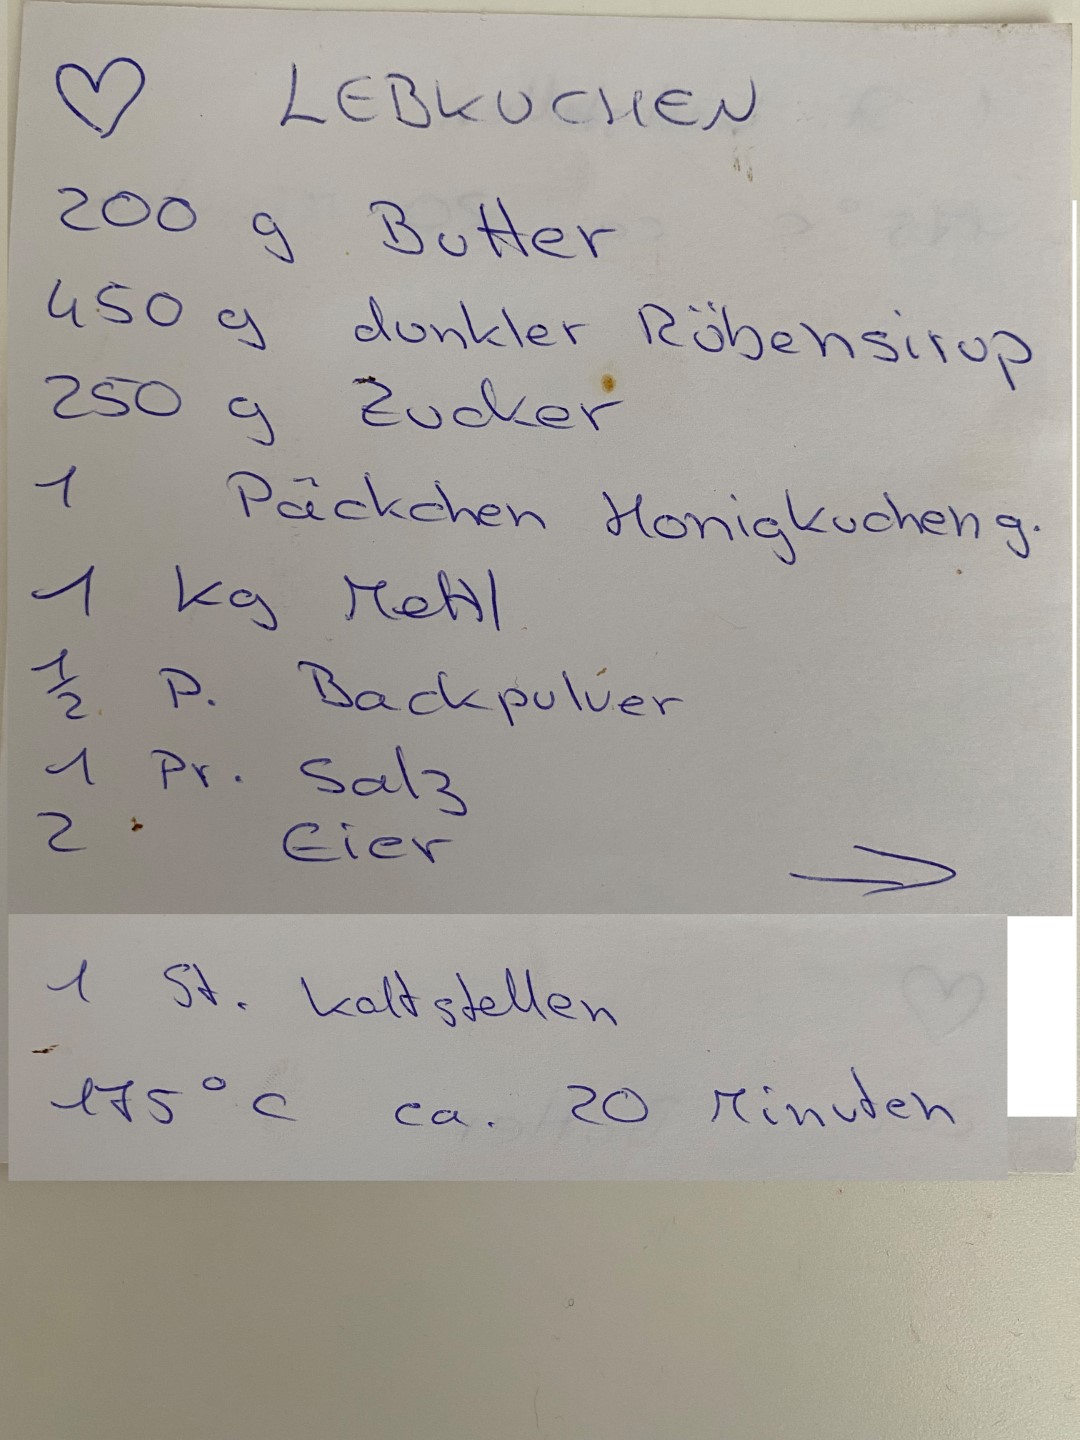 LEBKUCHEN
200 g Butter
450 g dunkler Rübensirup
250 g Zucker
1 Päckchen Honigkuchen g.
1 kg Mehl
1/2 P. Backpulver
1 Pr. Salz
2 Eier
1 St. kaltstellen
175°C ca. 20 Minuten